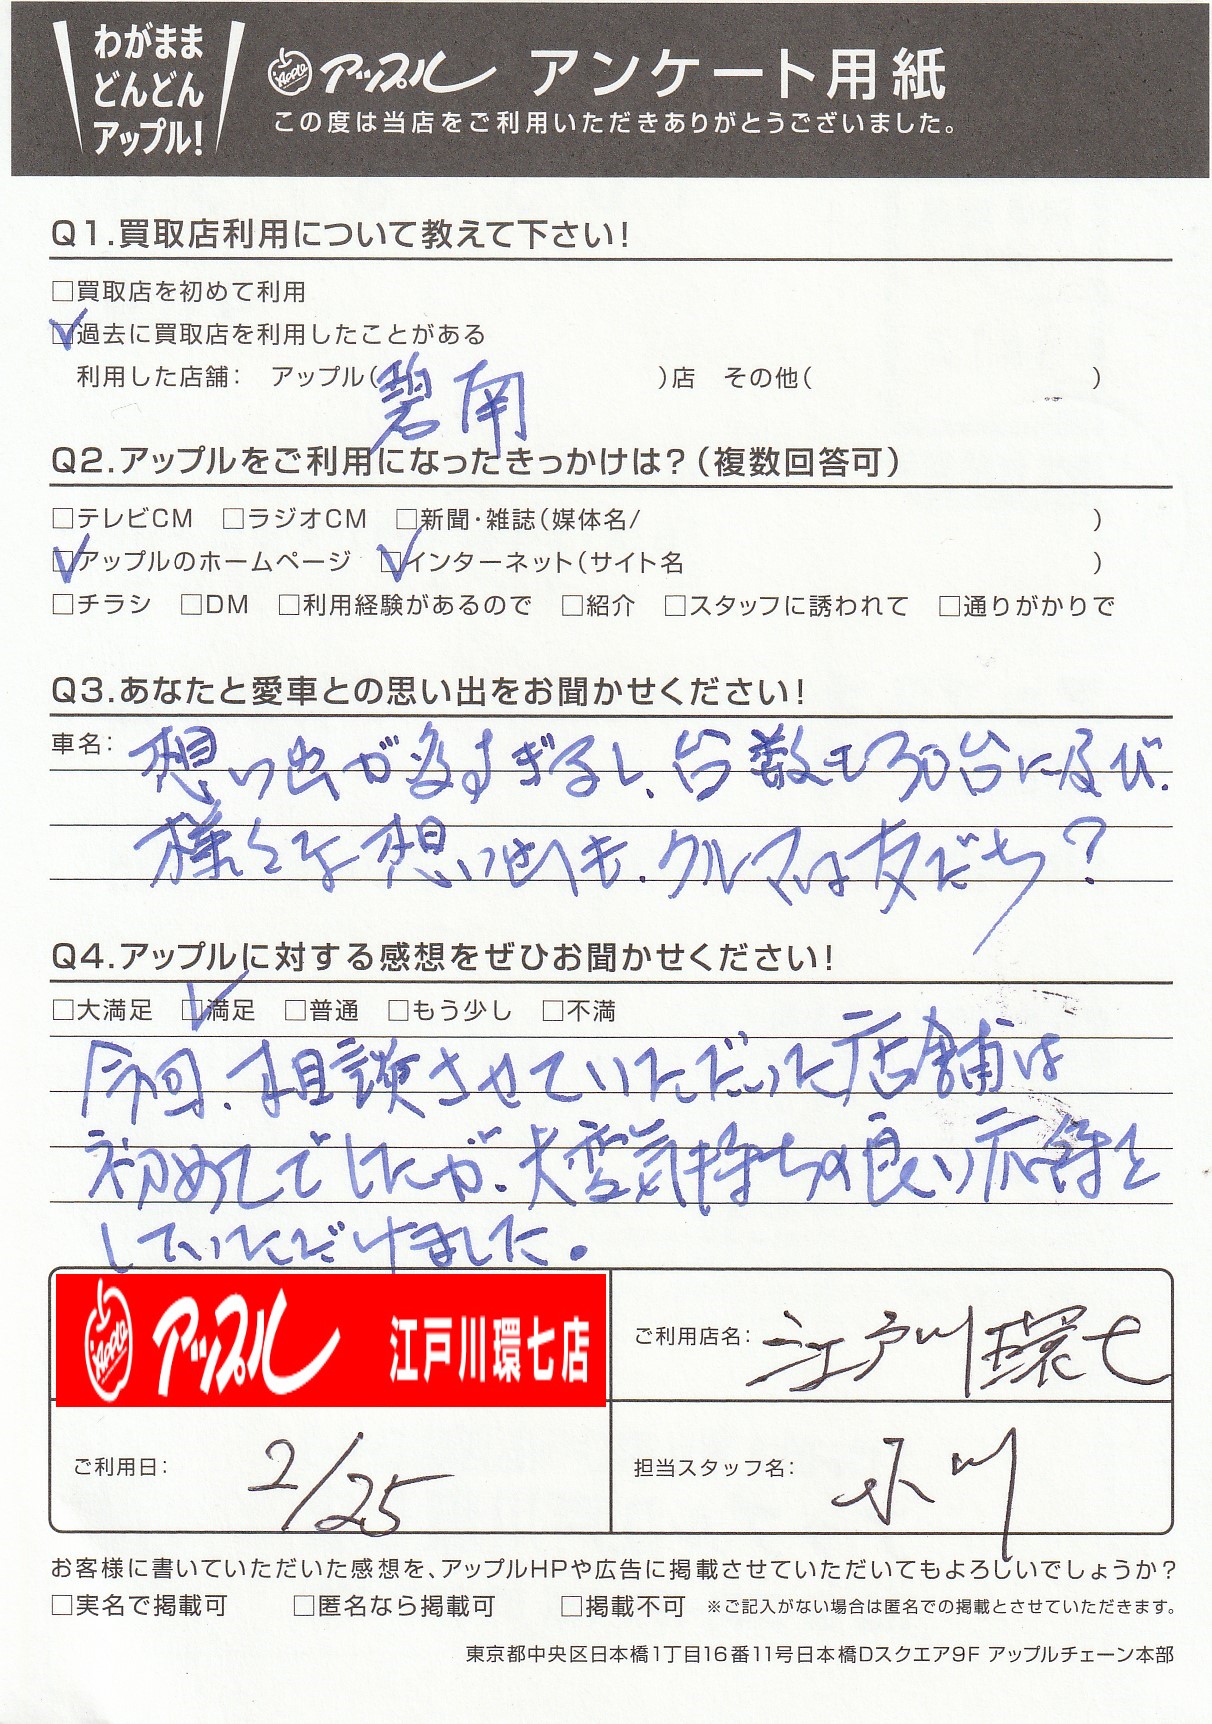 わがまま
どんどん
アップル!
Apple アップル アンケート用紙
この度は当店をご利用いただきありがとうございました。
Q1.買取店利用について教えて下さい!
□買取店を初めて利用
☑過去に買取店を利用したことがある
利用した店舗: アップル(碧南)店 その他( )
Q2.アップルをご利用になったきっかけは?(複数回答可)
□テレビCM □ラジオCM □新聞・雑誌(媒体名/ )
☑アップルのホームページ ☑インターネット(サイト名 )
□チラシ □DM □利用経験があるので □紹介 □スタッフに誘われて □通りがかりで
Q3.あなたと愛車との思い出をお聞かせください!
車名: 想い出が多すぎるし、台数も30台に及び.
様々な想い出も.クルマは友だち?
Q4.アップルに対する感想をぜひお聞かせください!
□大満足 ☑満足 □普通 □もう少し □不満
今回、相談させていただいた店舗は
初めてでしたが、大変気持ちの良い応待を
していただけました。
Apple アップル 江戸川環七店
ご利用店名: 江戸川環七
ご利用日: 2/25
担当スタッフ名: 小川
お客様に書いていただいた感想を、アップルHPや広告に掲載させていただいてもよろしいでしょうか?
□実名で掲載可 □匿名なら掲載可 □掲載不可 ※ご記入がない場合は匿名での掲載とさせていただきます。
東京都中央区日本橋1丁目16番11号日本橋Dスクエア9F アップルチェーン本部